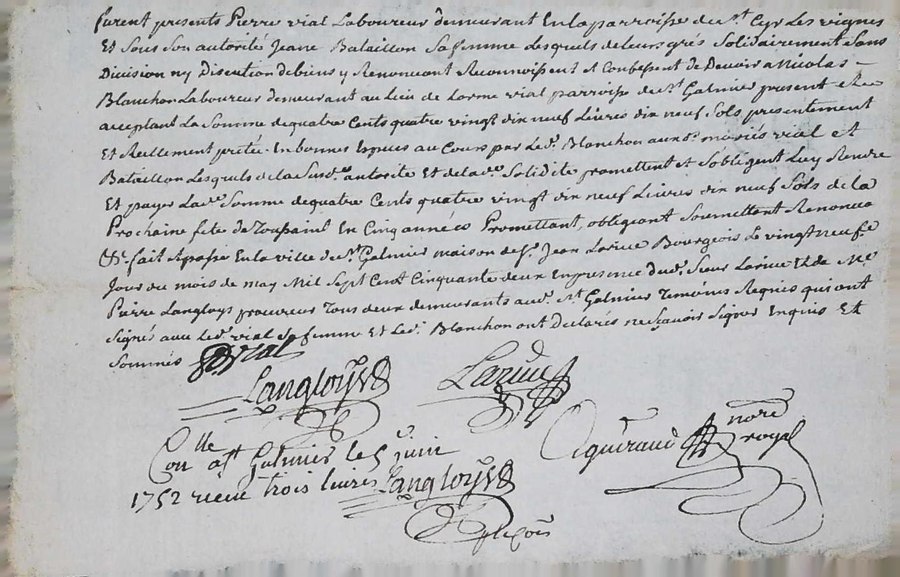 furent presents Pierre vial Laboureur demeurant En la parroisse de st. Cyr Les vignes
Et Sous Son autorités Jeane Bataillon Sa femme Lesquels de leurs grés Solidairement Sans
Division ny Discution de biens y Renoncant Reconnoissent et Confessent de Devoir a Nicolas
Blanchon Laboureur demeurant au Lieu de Lorme vial parroisse de st. Galmier present et
acceptant La Somme de quatre Cents quatre vingt dix neuf Livres dix neuf Sols presentement
Et Reellement prétée En bonnes Espèces au Cours par Led. Blanchon aux d. mariés vial et
Bataillon Lesquels de la Susd. autorité Et de lad. Solidité promettent et S'obligent Luy Rendre
Et payer Lad. Somme de quatre Cents quatre vingt dix neuf Livres dix neuf Sols de la
Prochaine fête de Toussaint En Cinq année Promettant, obligeant Soumettant Renonca
fait & passé En la ville de st. Galmier maison de Sr. Jean Larive Bourgeois Le vingt neufe
Jour du mois de may Mil Sept Cent Cinquante deux En presence dud. Sieur Larive Et de Me
Pierre Langloys procureur Tous deux demeurants aud. St. Galmier Temoins Requis qui ont
Signés avec Led. vial Sa femme Et Led. Blanchon ont Declarés ne Scavoir Signer Enquis Et
Sommés P vial
Langloys Larive
Con lle a st Galmier le 5 juin
1752 receu trois livres Langloys
nore royal